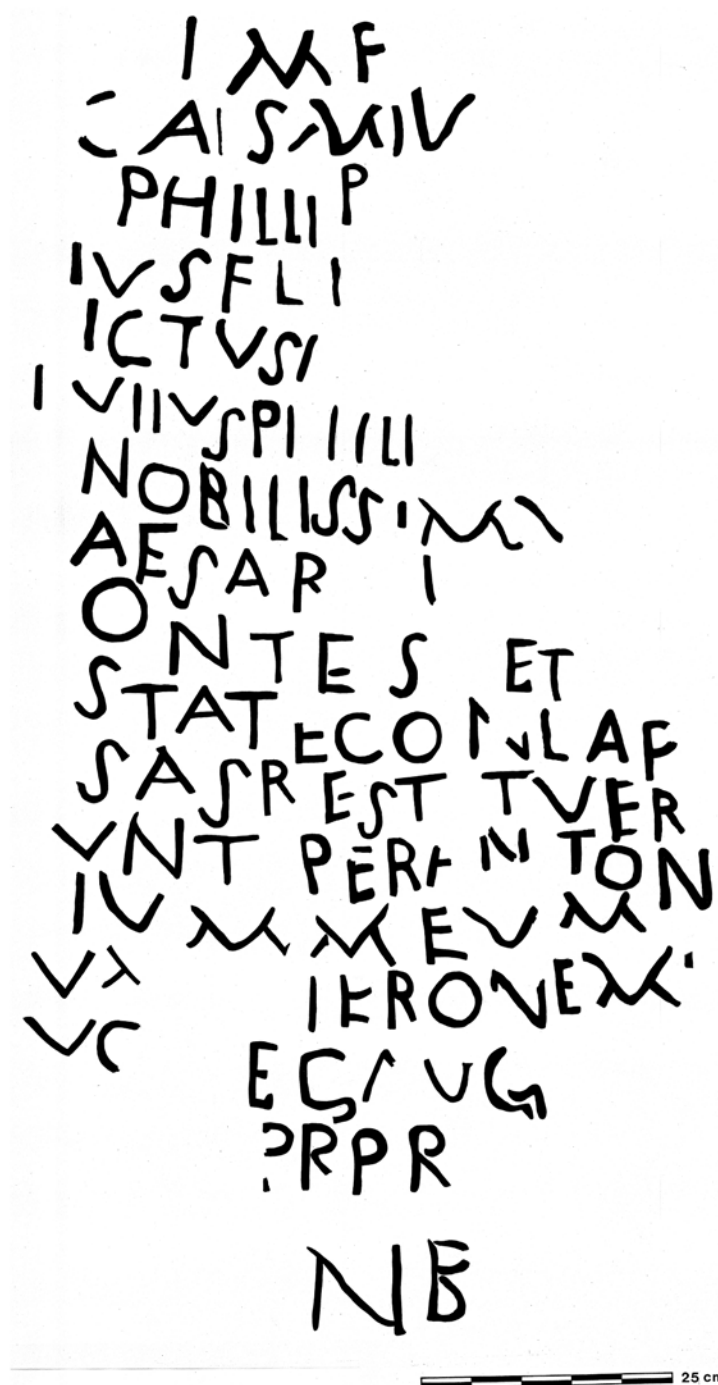 IMF
CAISMIV
PHILLIP
IVSFLI
ICTVSI
IVIIVSPIIILI
NOBILISSIMI
AESAR I
ONTES ET
STATECONLAF
SASREST TVER
VNT PERANTON
IVMMEVM
VA IERONEM
VC
ECAUG
PRPR
NB
25 cm